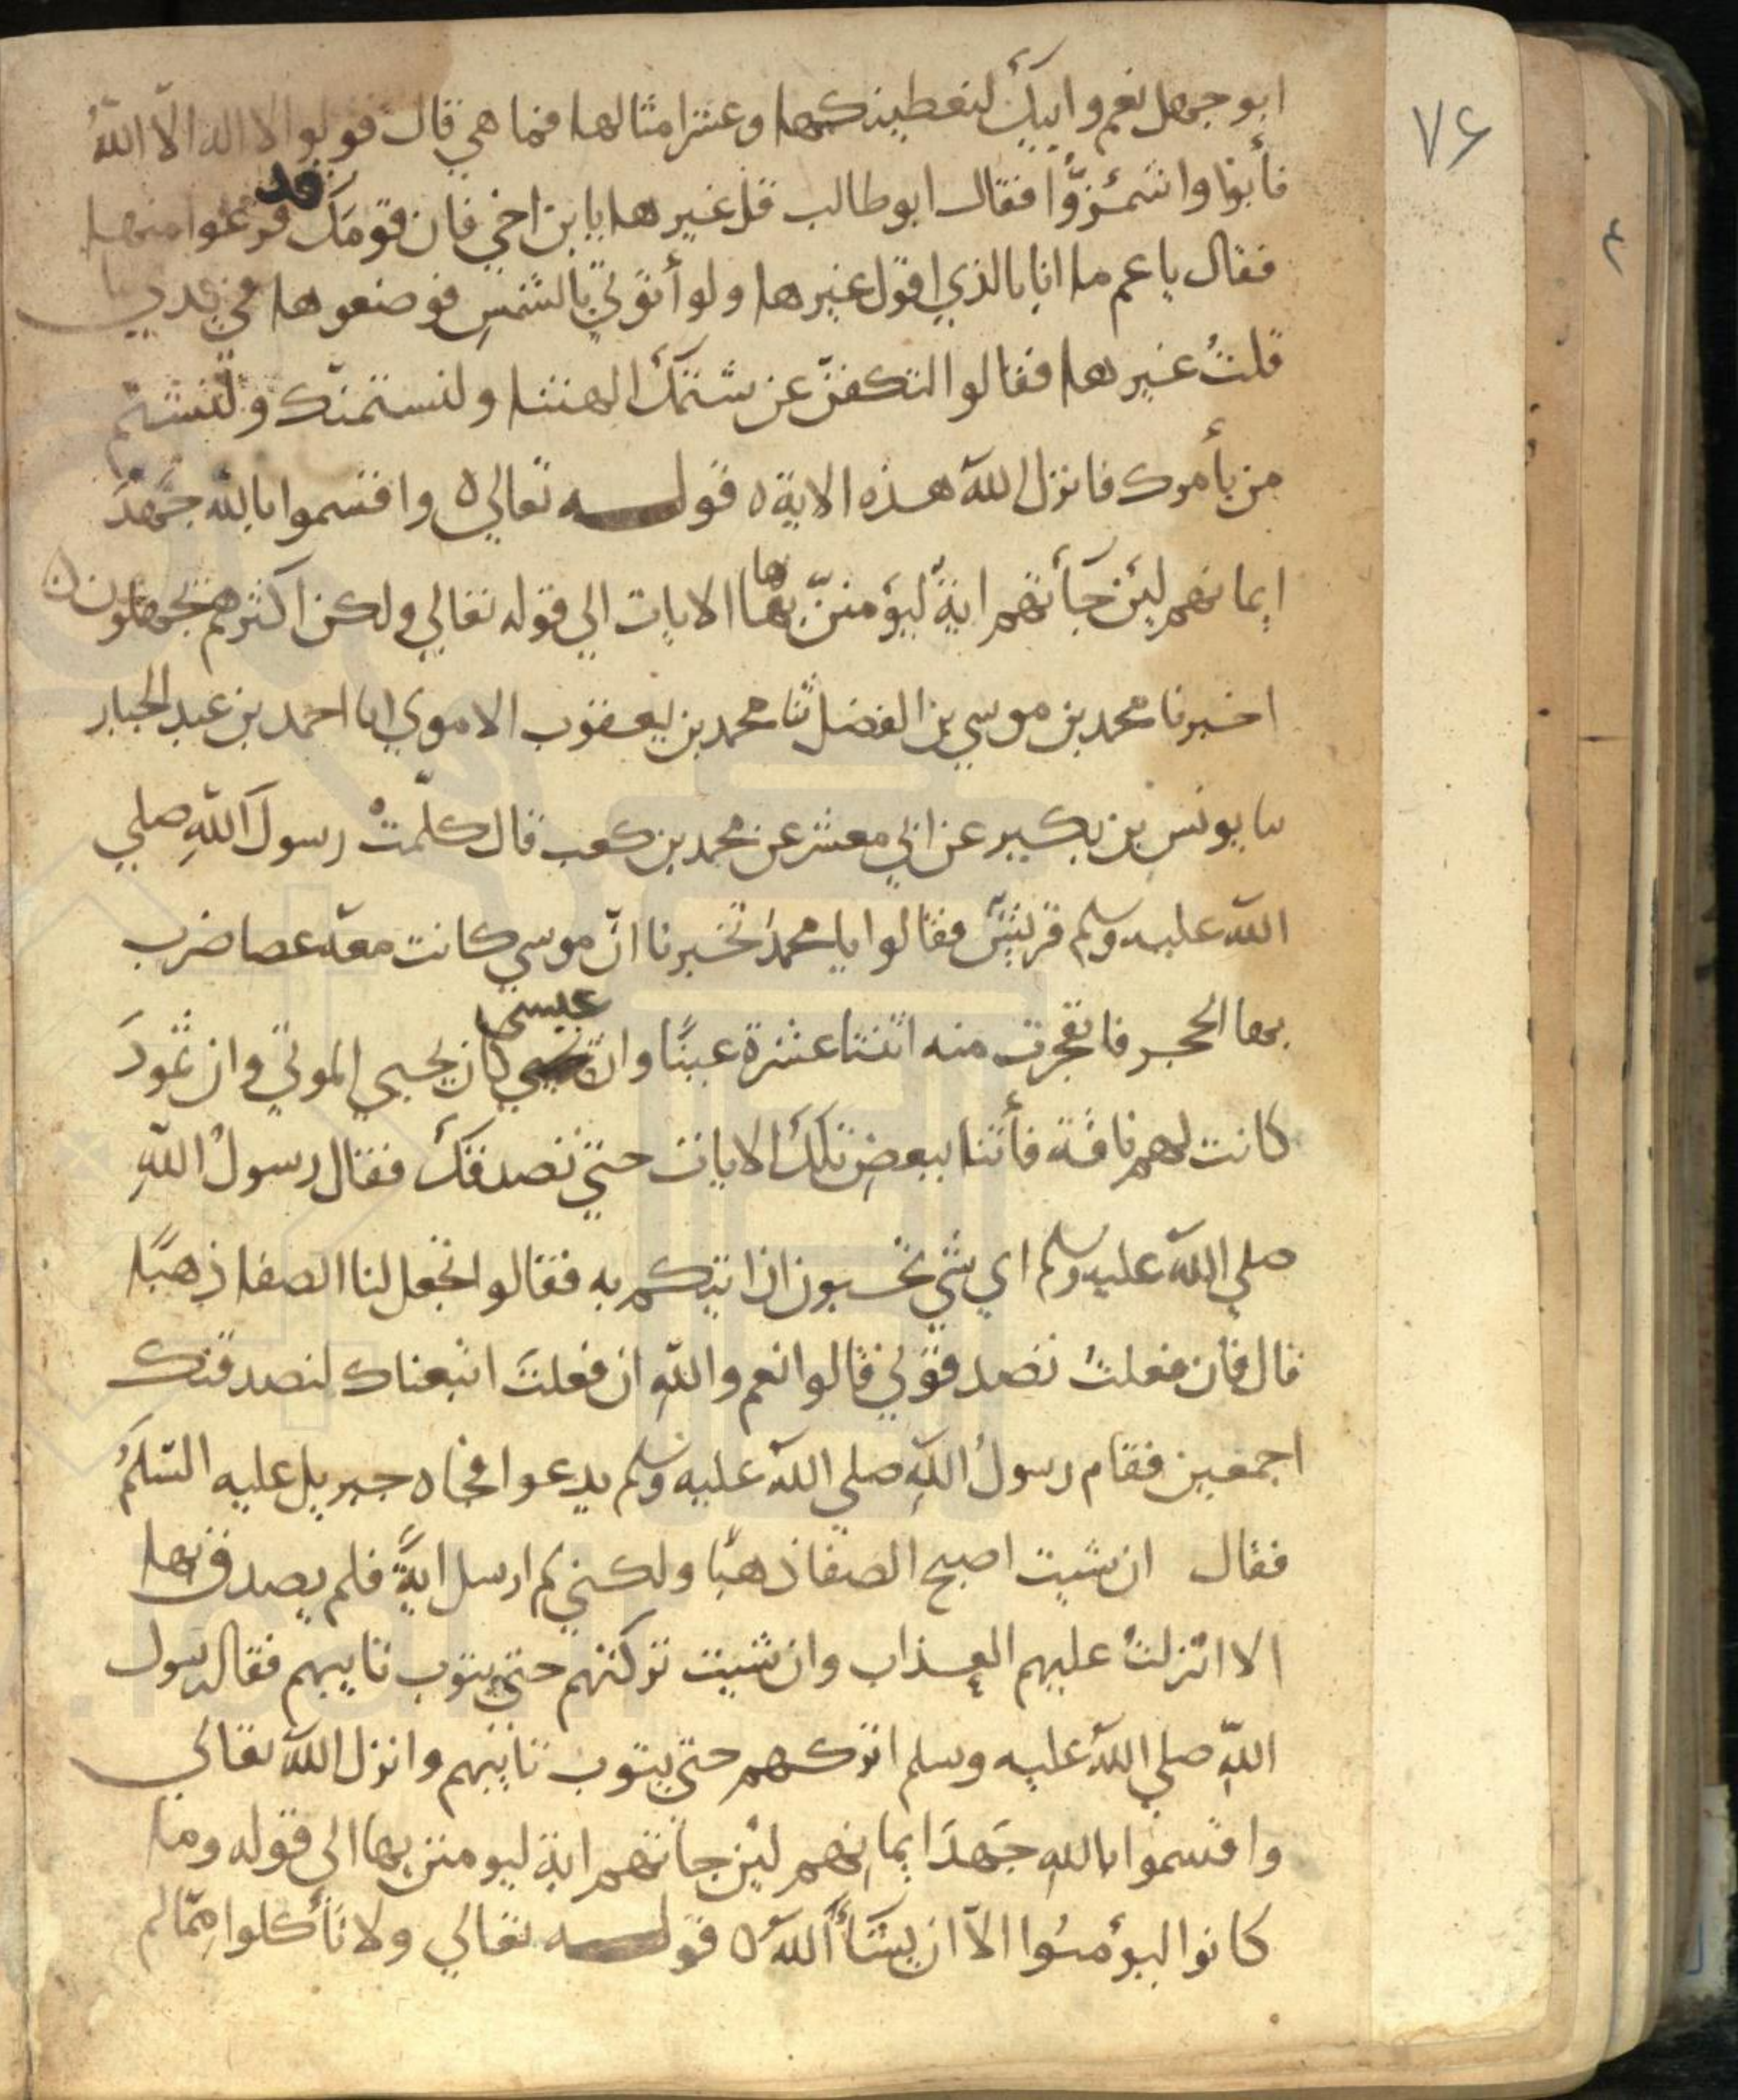 ٧۶
ابو جهل نعم وابيك لنعطينكها وعشر امثالها فما هي قال قولوا لا اله الا اللهُ
فأبوا واشمئزّوا فقال ابو طالب قل غيرها يا بن اخي فان قومَك قد فزعوا منها
فقال يا عم ما انا بالذي اقول غيرها ولو أتوني بالشمسِ فوضعوها في يدي
قلتُ غيرها فقالوا لتكفنّ عن شتمك الهتنا ولنشتمنّك ولنشتم
من يأمرك فانزل الله هذه الاية ه قولـــه تعالي ه واقسموا بالله جَهْدَ
ايمانهم ليَن جَأتهم ايةٌ ليؤمننّ بها ها الايات الي قوله تعالي ولكن اكثرهم يجهلون ن
اخبرنا محمد بن موسي بن الفضل ثنا محمد بن يعقوب الاموي انا احمد بن عبد الجبار
نا يونس بن بكير عن ابي معشر عن محمد بن كعب قال كلّمتْ رسولَ اللهِ صلي
الله عليه وسلم قريشٌ فقالوا يا محمدُ تخبرنا انّ موسي كانت معه عصا ضرب
بها الحجر فانفجرت منه اثنتا عشرة عينًا وان عيسى كان يحيي الموتي وان ثمودَ
كانت لهم ناقة فأتنا ببعضِ تلك الايات حتي نصدقك فقال رسولُ اللهِ
صلي الله عليه وسلم اي شي تحبون ان اتيكم به فقالوا تجعل لنا الصفا ذهبًا
قال فان فعلتُ تصدقوني قالوا نعم واللهِ ان فعلتَ اتبعناك لنصدقنك
اجمعين فقام رسولُ اللهِ صلي الله عليه وسلم يدعوا فجاه جبريل عليه السلمُ
فقال ان شيت اصبح الصفا ذهبًا ولكني لم ارسل ايةً فلم يصدق بها
الا انزلتُ عليهم العذاب وان شيت تركتهم حتي يتوب تايبهم فقال رسول
اللهِ صلي الله عليه وسلم اتركهم حتي يتوب تايبهم وانزل الله تعالي
واقسموا باللهِ جَهدَ ايمانِهم ليَن جاتهم اية ليومنن بها الي قوله وما
كانوا ليؤمنُوا الاّ ان يشَأَ الله ه قولـــه تعالي ولا تأكلوا مِمّا لم